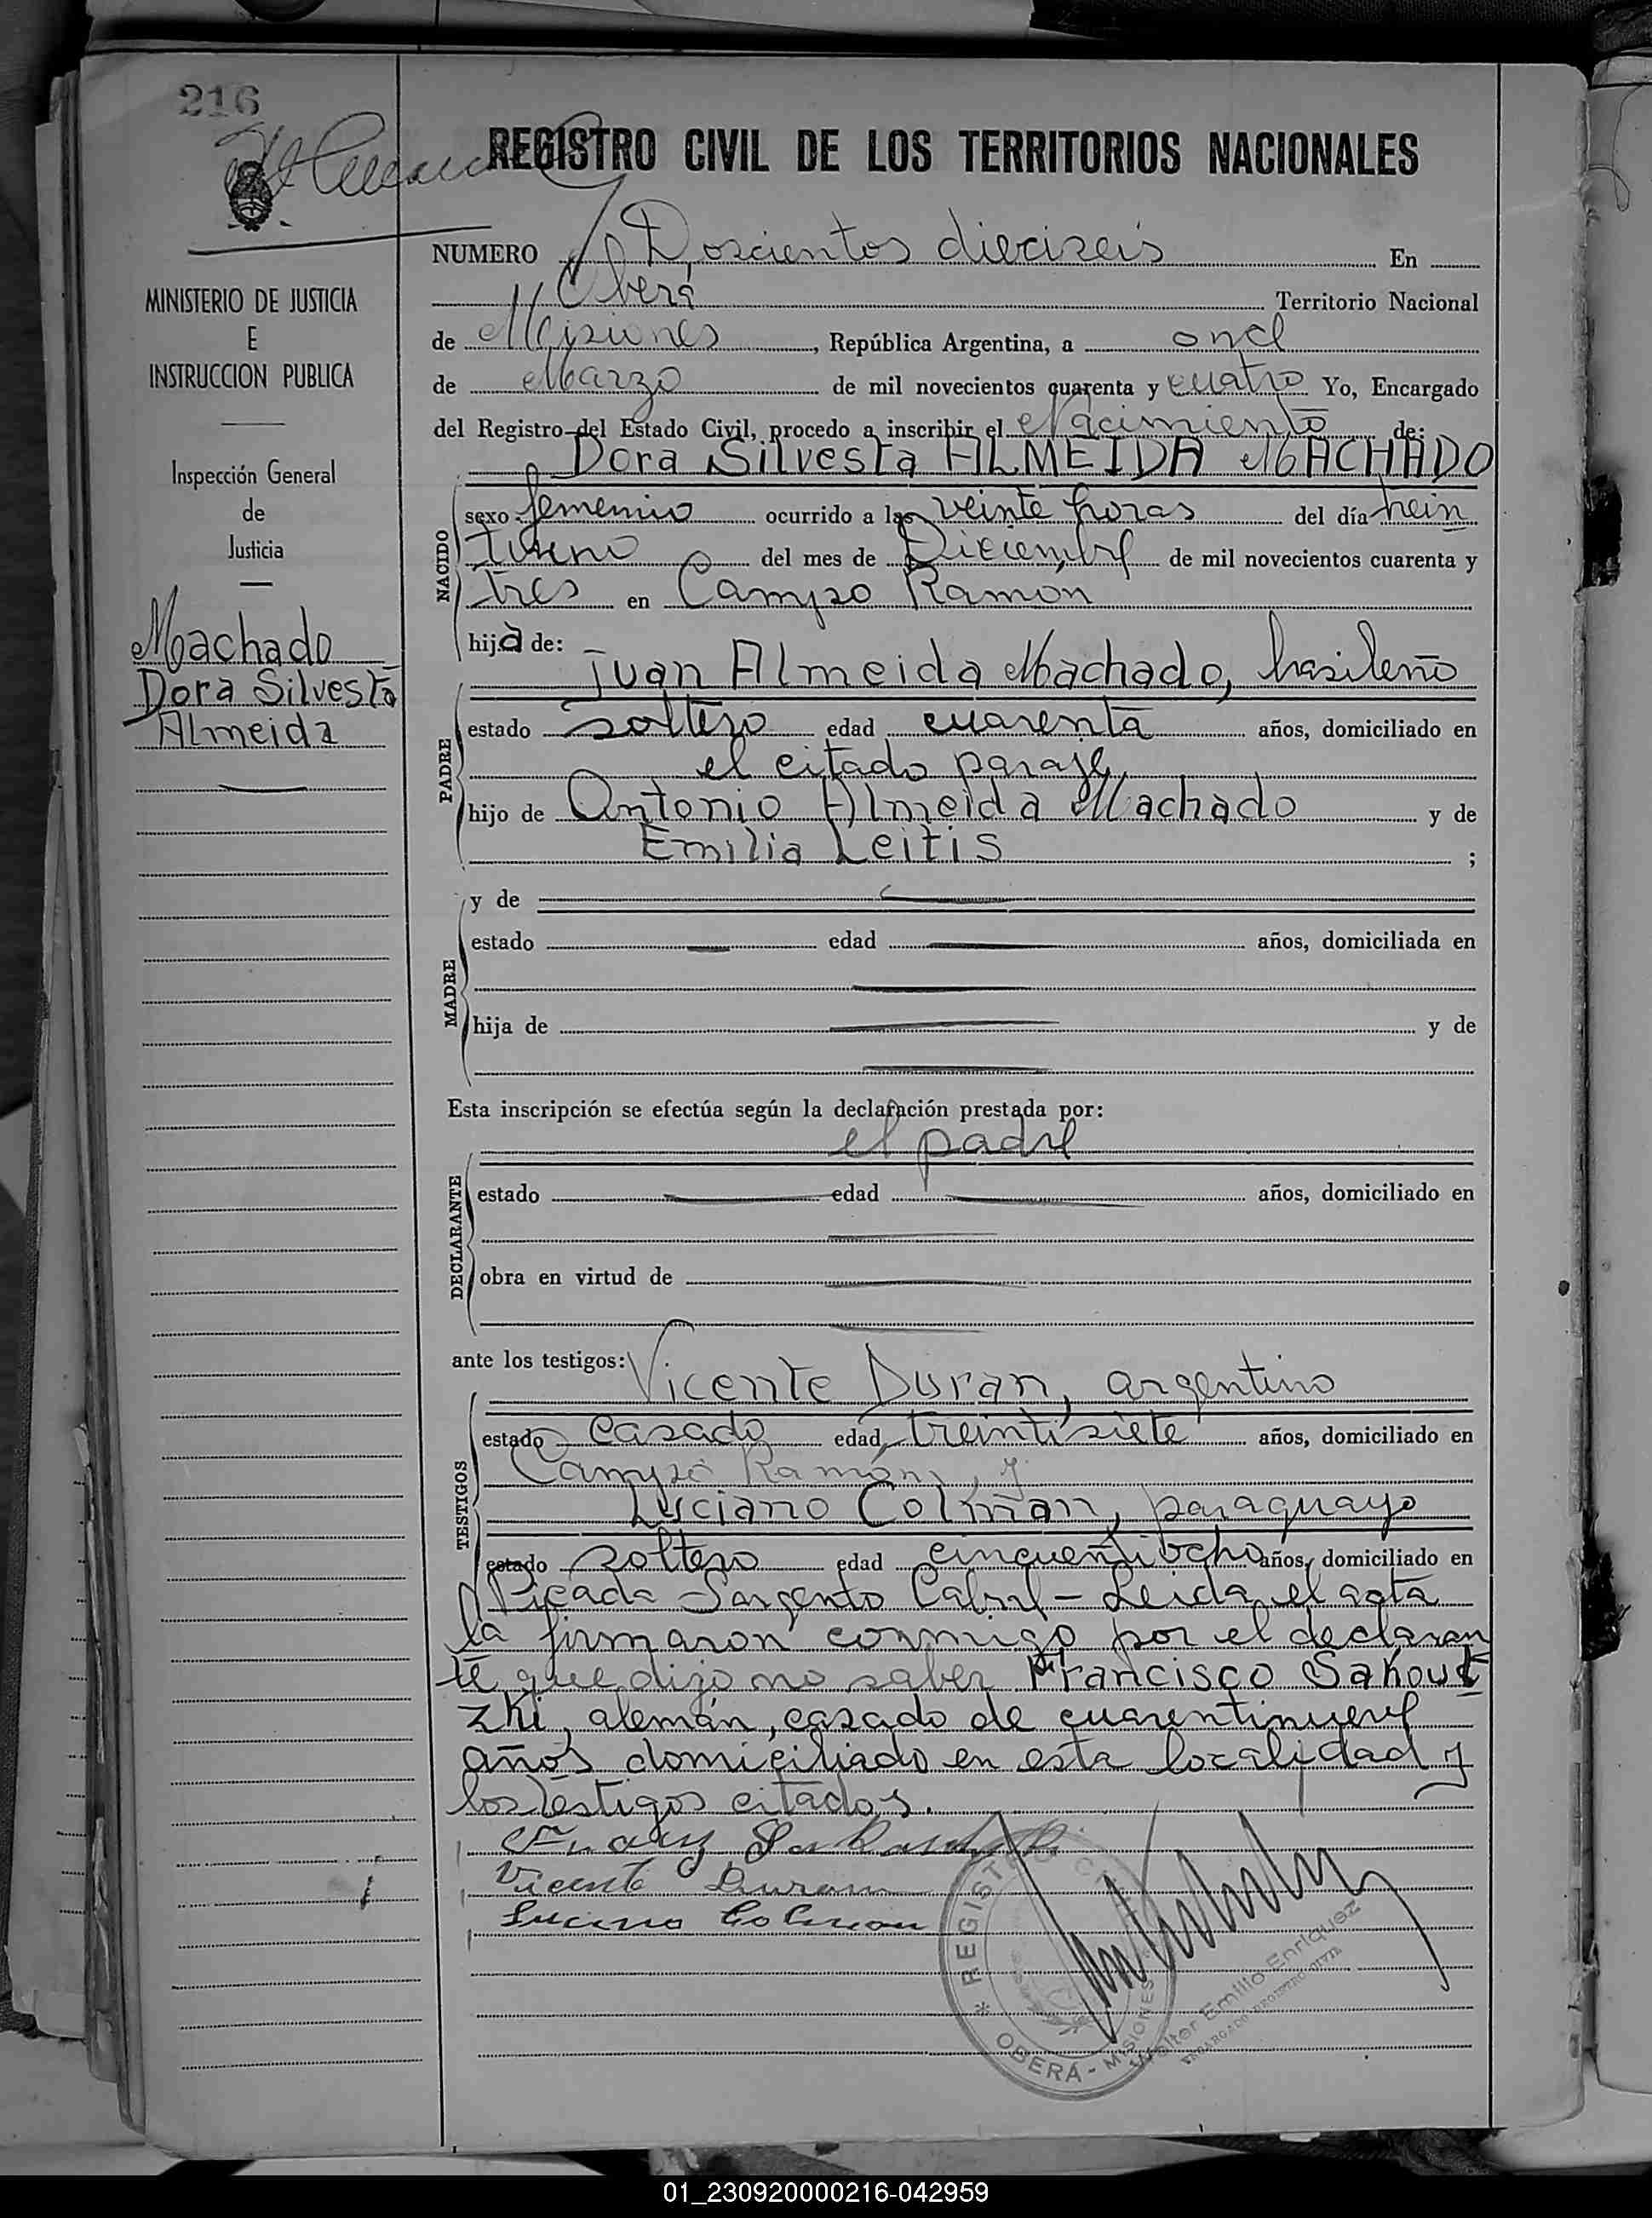 216
REGISTRO CIVIL DE LOS TERRITORIOS NACIONALES
MINISTERIO DE JUSTICIA
E
INSTRUCCION PUBLICA
Inspección General
de
Justicia
Machado
Dora Silvesta
Almeida
NUMERO Doscientos dieciseis En
Oberá Territorio Nacional
de Misiones, República Argentina, a once
de Marzo de mil novecientos cuarenta y cuatro Yo, Encargado
del Registro del Estado Civil, procedo a inscribir el Nacimiento de:
Dora Silvesta ALMEIDA MACHADO
NACIDO
sexo femenino ocurrido a las veinte horas del día trein
tiuno del mes de Diciembre de mil novecientos cuarenta y
tres en Campo Ramón
hija de:
Juan Almeida Machado, brasileño
PADRE
estado soltero edad cuarenta años, domiciliado en
el citado paraje,
hijo de Antonio Almeida Machado y de
Emilia Leitis ;
MADRE
y de
estado edad años, domiciliada en
hija de y de
Esta inscripción se efectúa según la declaración prestada por:
el padre
DECLARANTE
estado edad años, domiciliado en
obra en virtud de
ante los testigos: Vicente Duran, argentino
TESTIGOS
estado casado edad treintisiete años, domiciliado en
Campo Ramón, y
Luciano Colman, paraguayo
estado soltero edad cincuentiocho años, domiciliado en
Picada Sargento Cabral - Leida el acta
la firmaron conmigo por el declaran
te que dijo no saber Francisco Sakowt
zki, alemán, casado de cuarentinueve
años domiciliado en esta localidad y
los testigos citados.
Vicente Duran
Luciano Colman
REGISTRO CIVIL
OBERÁ - MISIONES
Walter Emilio Enriquez
ENCARGADO REGISTRO CIVIL
01_230920000216-042959